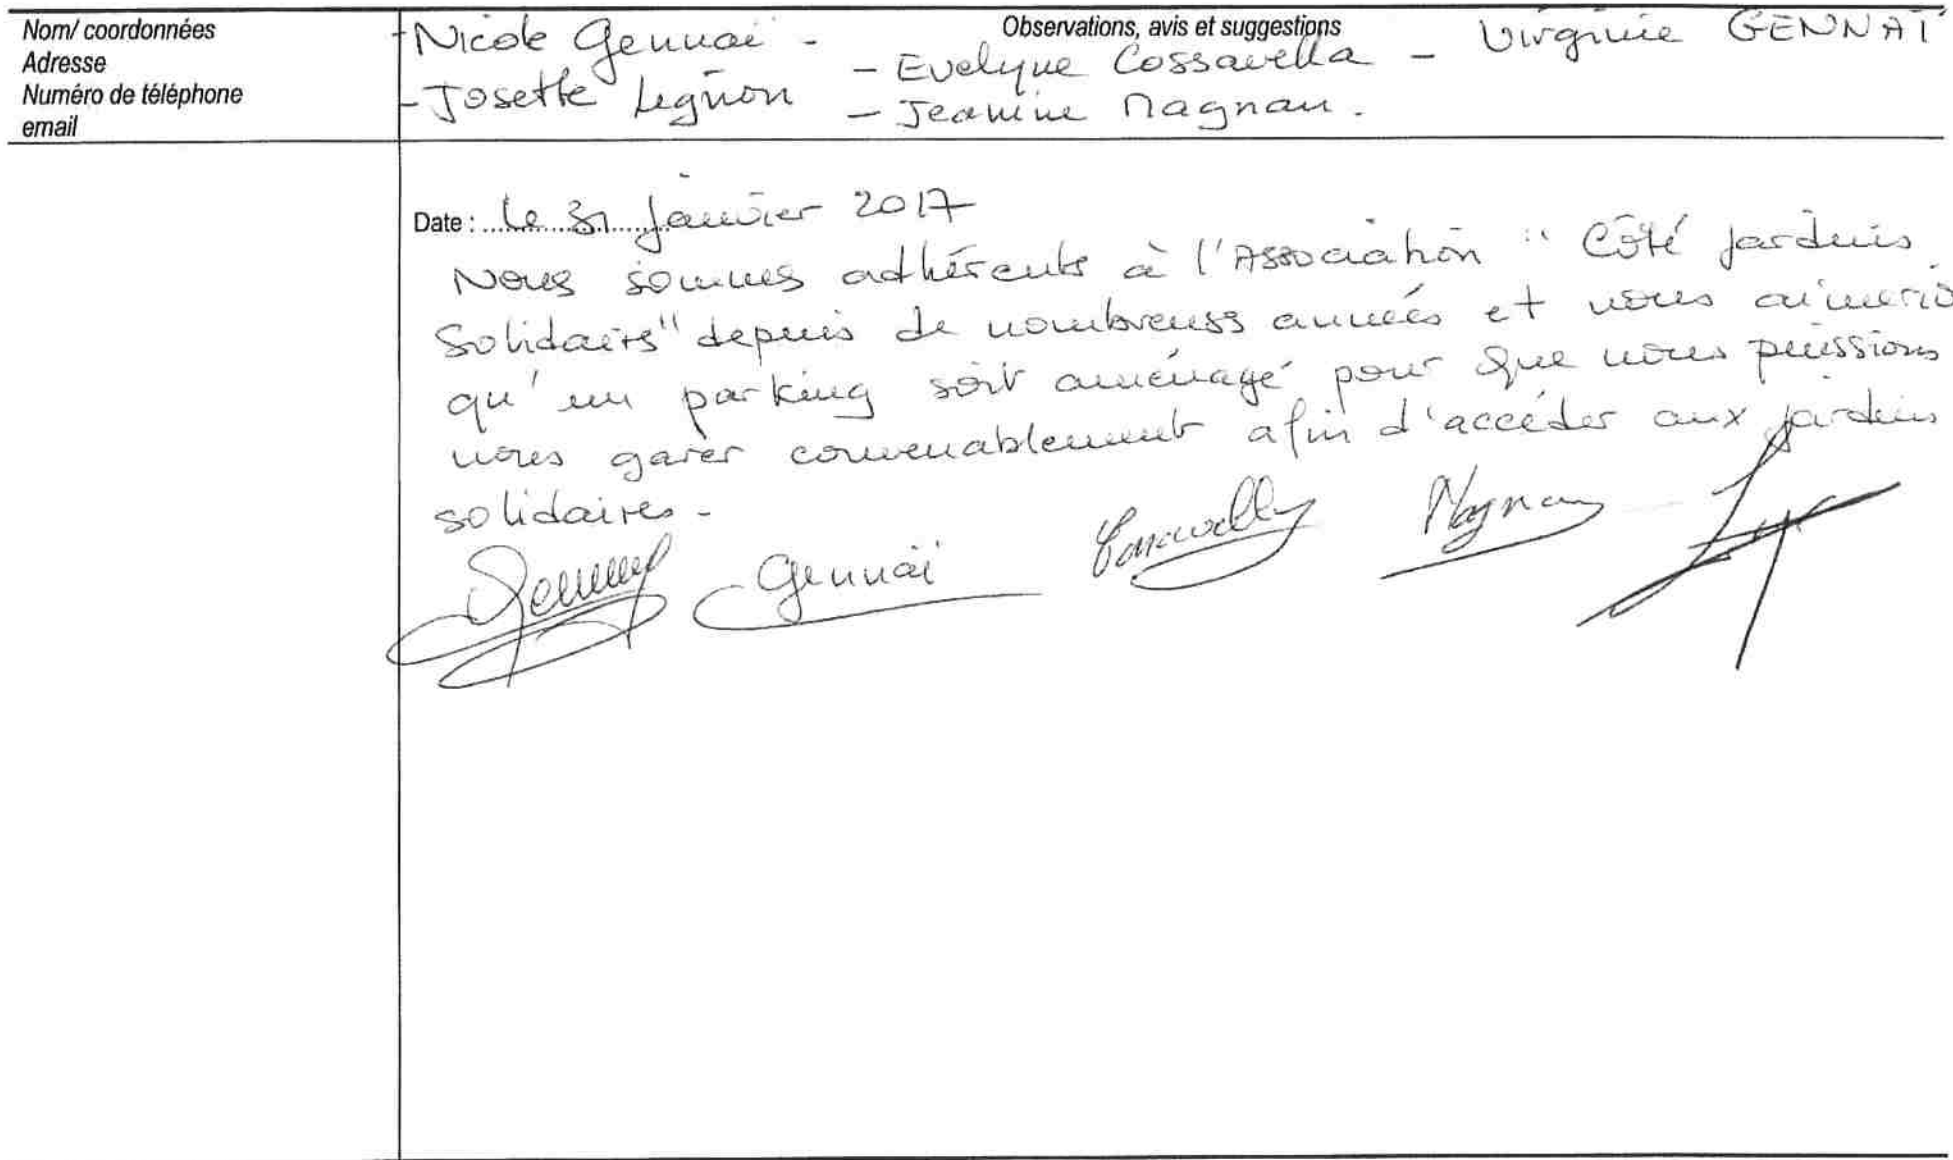 Nom/ coordonnées
Adresse
Numéro de téléphone
email
Observations, avis et suggestions
- Nicole Gennaï - 
- Evelyne Cossavella - Virginie GENNAÏ
- Josette Legnon - Jeanine Magnan.
Date : Le 31 Janvier 2017
Nous sommes adhérents à l'Association "Côté Jardins
Solidaires" depuis de nombreuses années et nous aimerio
qu'un parking soit aménagé pour que nous puissions
nous garer convenablement afin d'accéder aux jardins
solidaires -
Gennaï
Magnan